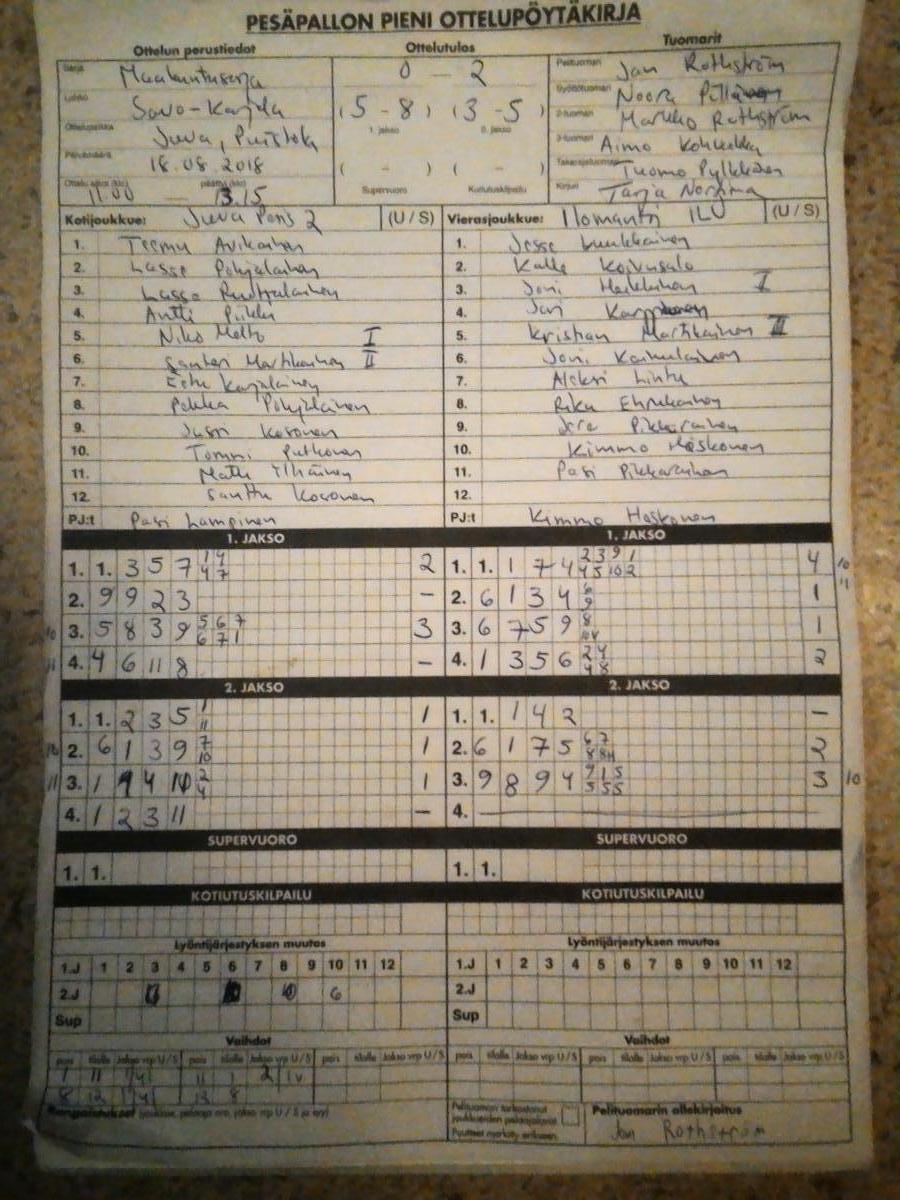 PESÄPALLON PIENI OTTELUPÖYTÄKIRJA
Ottelun perustiedot Ottelutulos Tuomarit
Sarja Maakuntasarja 0 2 Pelituomari Jan Rothström
Lohko Savo-Karjala (5 - 8) (3 - 5) Syöttötuomari Noora
1. jakso 2. jakso 2-tuomari Markko Rothström
Ottelupaikka Juva, 3-tuomari Aimo
Päivämäärä 18.08.2018 ( - ) ( - ) Takarajatuomari Tuomo Pylkkänen
Ottelu alkoi (klo) 11.00 päättyi (klo) 13.15 Supervuoro Kotiutuskilpailu Kirjuri Tarja
Kotijoukkue: Juva Pons 2 (U / S) Vierasjoukkue: Ilomantsi ILU (U / S)
1. Teemu Avikainen 1. Jesse Luukkainen
2. Lasse Pohjalainen 2. Kalle Koivusalo
3. Lasse 3. Joni Heikkinen I
4. Antti Piikki 4. Jari Karppinen
5. Niko I 5. Kristian Martikainen II
6. Santeri Martikainen II 6. Joni Kaikulainen
7. Eetu Karjalainen 7. Aleksi Lintu
8. Pekka Pohjalainen 8. Riku
9. Jussi Kosonen 9. Jere Pikkarainen
10. Tommi Putkonen 10. Kimmo Haskonen
11. Matti 11. Pasi Pikkarainen
12. Santtu Kosonen 12.
PJ:t Pasi Lampinen PJ:t Kimmo Haskonen
1. JAKSO 1. JAKSO
1. 1. 3 5 7 1 4 2 1. 1. 1 7 4 2 3 9 1 4 10
4 7 4 5 10 2 11
2. 9 9 2 3 - 2. 6 1 3 4 6 1
9
10 3. 5 8 3 9 5 6 7 3 3. 6 7 5 9 8 1
6 7 1
11 4. 4 6 11 8 - 4. 1 3 5 6 2 4 2
4 8
2. JAKSO 2. JAKSO
1. 1. 2 3 5 1 1 1. 1. 1 4 2 -
11
10 2. 6 1 3 9 7 1 2. 6 1 7 5 6 7 2
10
11 3. 1 9 4 10 2 1 3. 9 8 9 4 9 1 5 3 10
4 5 5 5
4. 1 2 3 11 - 4.
SUPERVUORO SUPERVUORO
1. 1. 1. 1.
KOTIUTUSKILPAILU KOTIUTUSKILPAILU
Lyöntijärjestyksen muutos Lyöntijärjestyksen muutos
1.J 1 2 3 4 5 6 7 8 9 10 11 12 1.J 1 2 3 4 5 6 7 8 9 10 11 12
2.J 6 2.J
Sup Sup
Vaihdot Vaihdot
pois tilalle Jakso vrp U / S pois tilalle Jakso vrp U / S pois tilalle Jakso vrp U / S pois tilalle Jakso vrp U / S pois tilalle Jakso vrp U / S pois tilalle Jakso vrp U / S
1 11 11 1 2 IV
8 12 12 8
Rangaistukset (joukkue, pelaaja nro, jakso vrp U / S ja syy) Pelituomari tarkastanut Pelituomarin allekirjoitus
joukkueiden pelaajaluvat
Puutteet merkitty erikseen. Jan Rothström